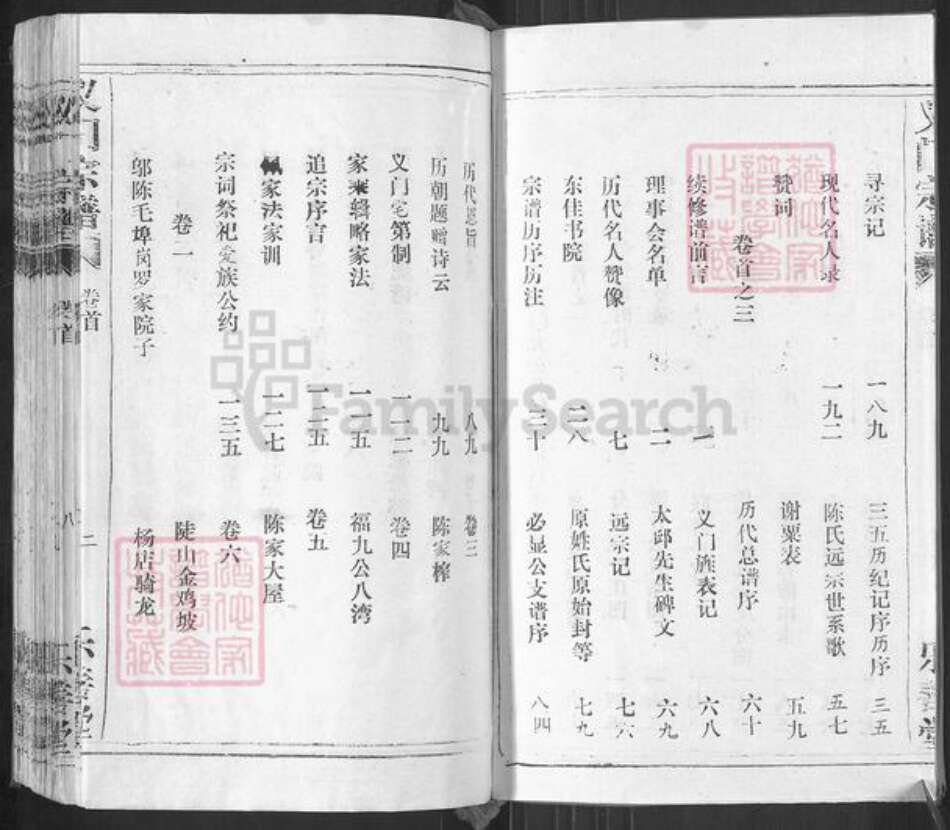 寻宗记 一八九 三五历纪记序历序 三五
现代名人录 一九二 陈氏远宗世系歌 五七
赞词 谢粟表 五九
卷首之三 历代总谱序 六十
续修谱前言 一 义门旌表记 六八
理事会名单 二 太邱先生碑文 六九
历代名人赞像 七 远宗记 七六
东佳书院 二八 原姓氏原始封等 七九
宗谱历序历注 三十 必显公支谱序 八四
历代恩旨 八九 卷三
历朝题赠诗云 九九 陈家榨
义门宅第制 一一二 卷四
家乘辑略家法 一一五 福九公八湾
追宗序言 一二五 卷五
家法家训 一二七 陈家大屋
宗词祭祀爱族公约 一三五 卷六
卷二 陡山金鸡坡
邬陈毛埠岗罗家院子 杨店骑龙
宗谱
卷首
二
FamilySearch